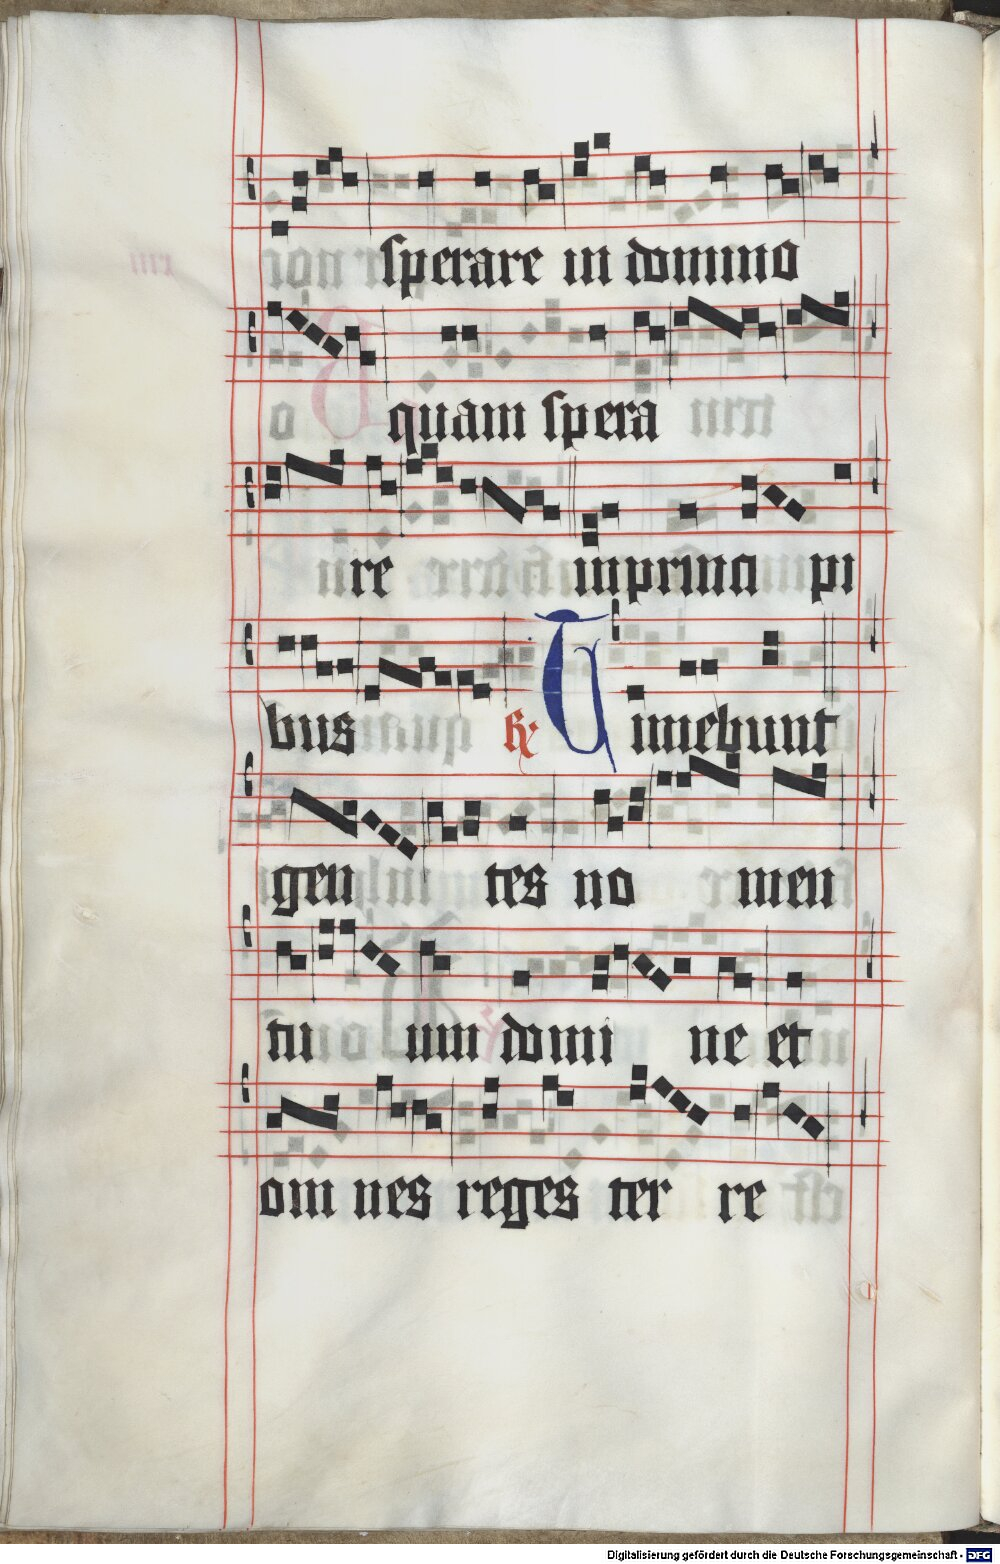 sperare in domino
quam spera
re in principi
bus ℟ Timebunt
gen tes no men
tu um domi ne et
om nes reges ter re
Digitalisierung gefördert durch die Deutsche Forschungsgemeinschaft - DFG